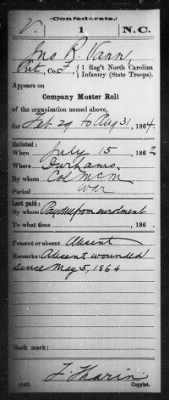 (Confederate.)
V. 1 N.C.
Jno R. Vann
Pvt, Co. F, 1 Reg't North Carolina
Infantry (State Troops).
Appears on
Company Muster Roll
of the organization named above,
for Feb 29 to Aug 31, 1864.
Enlisted:
When July 15, 1862
Where Durhams.
By whom Col McM
Period War
Last paid:
By whom from enrolment
To what time , 186 .
Present or absent Absent
Remarks: Absent wounded
since May 5, 1864
Book mark:
J. Tharin
Copyist.